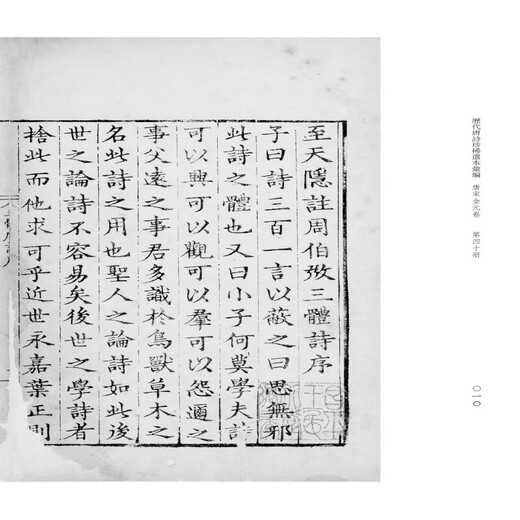 至天隱註周伯弜三體詩序
子曰詩三百一言以蔽之曰思無邪
此詩之體也又曰小子何莫學夫詩
可以興可以觀可以羣可以怨邇之
事父遠之事君多識於鳥獸草木之
名此詩之用也聖人之論詩如此後
世之論詩不容易矣後世之學詩者
捨此而他求可乎近世永嘉葉正則
歷代唐詩珍稀選本彙編 唐宋金元卷 第四十册
〇一〇